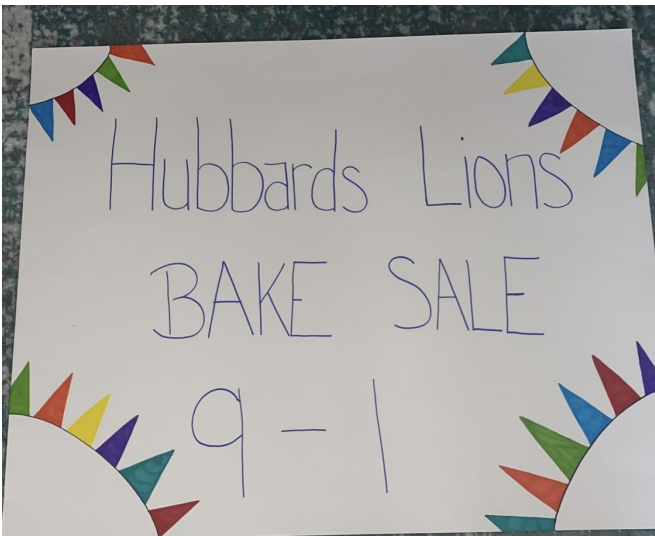 Hubbards Lions
BAKE SALE
9 - 1